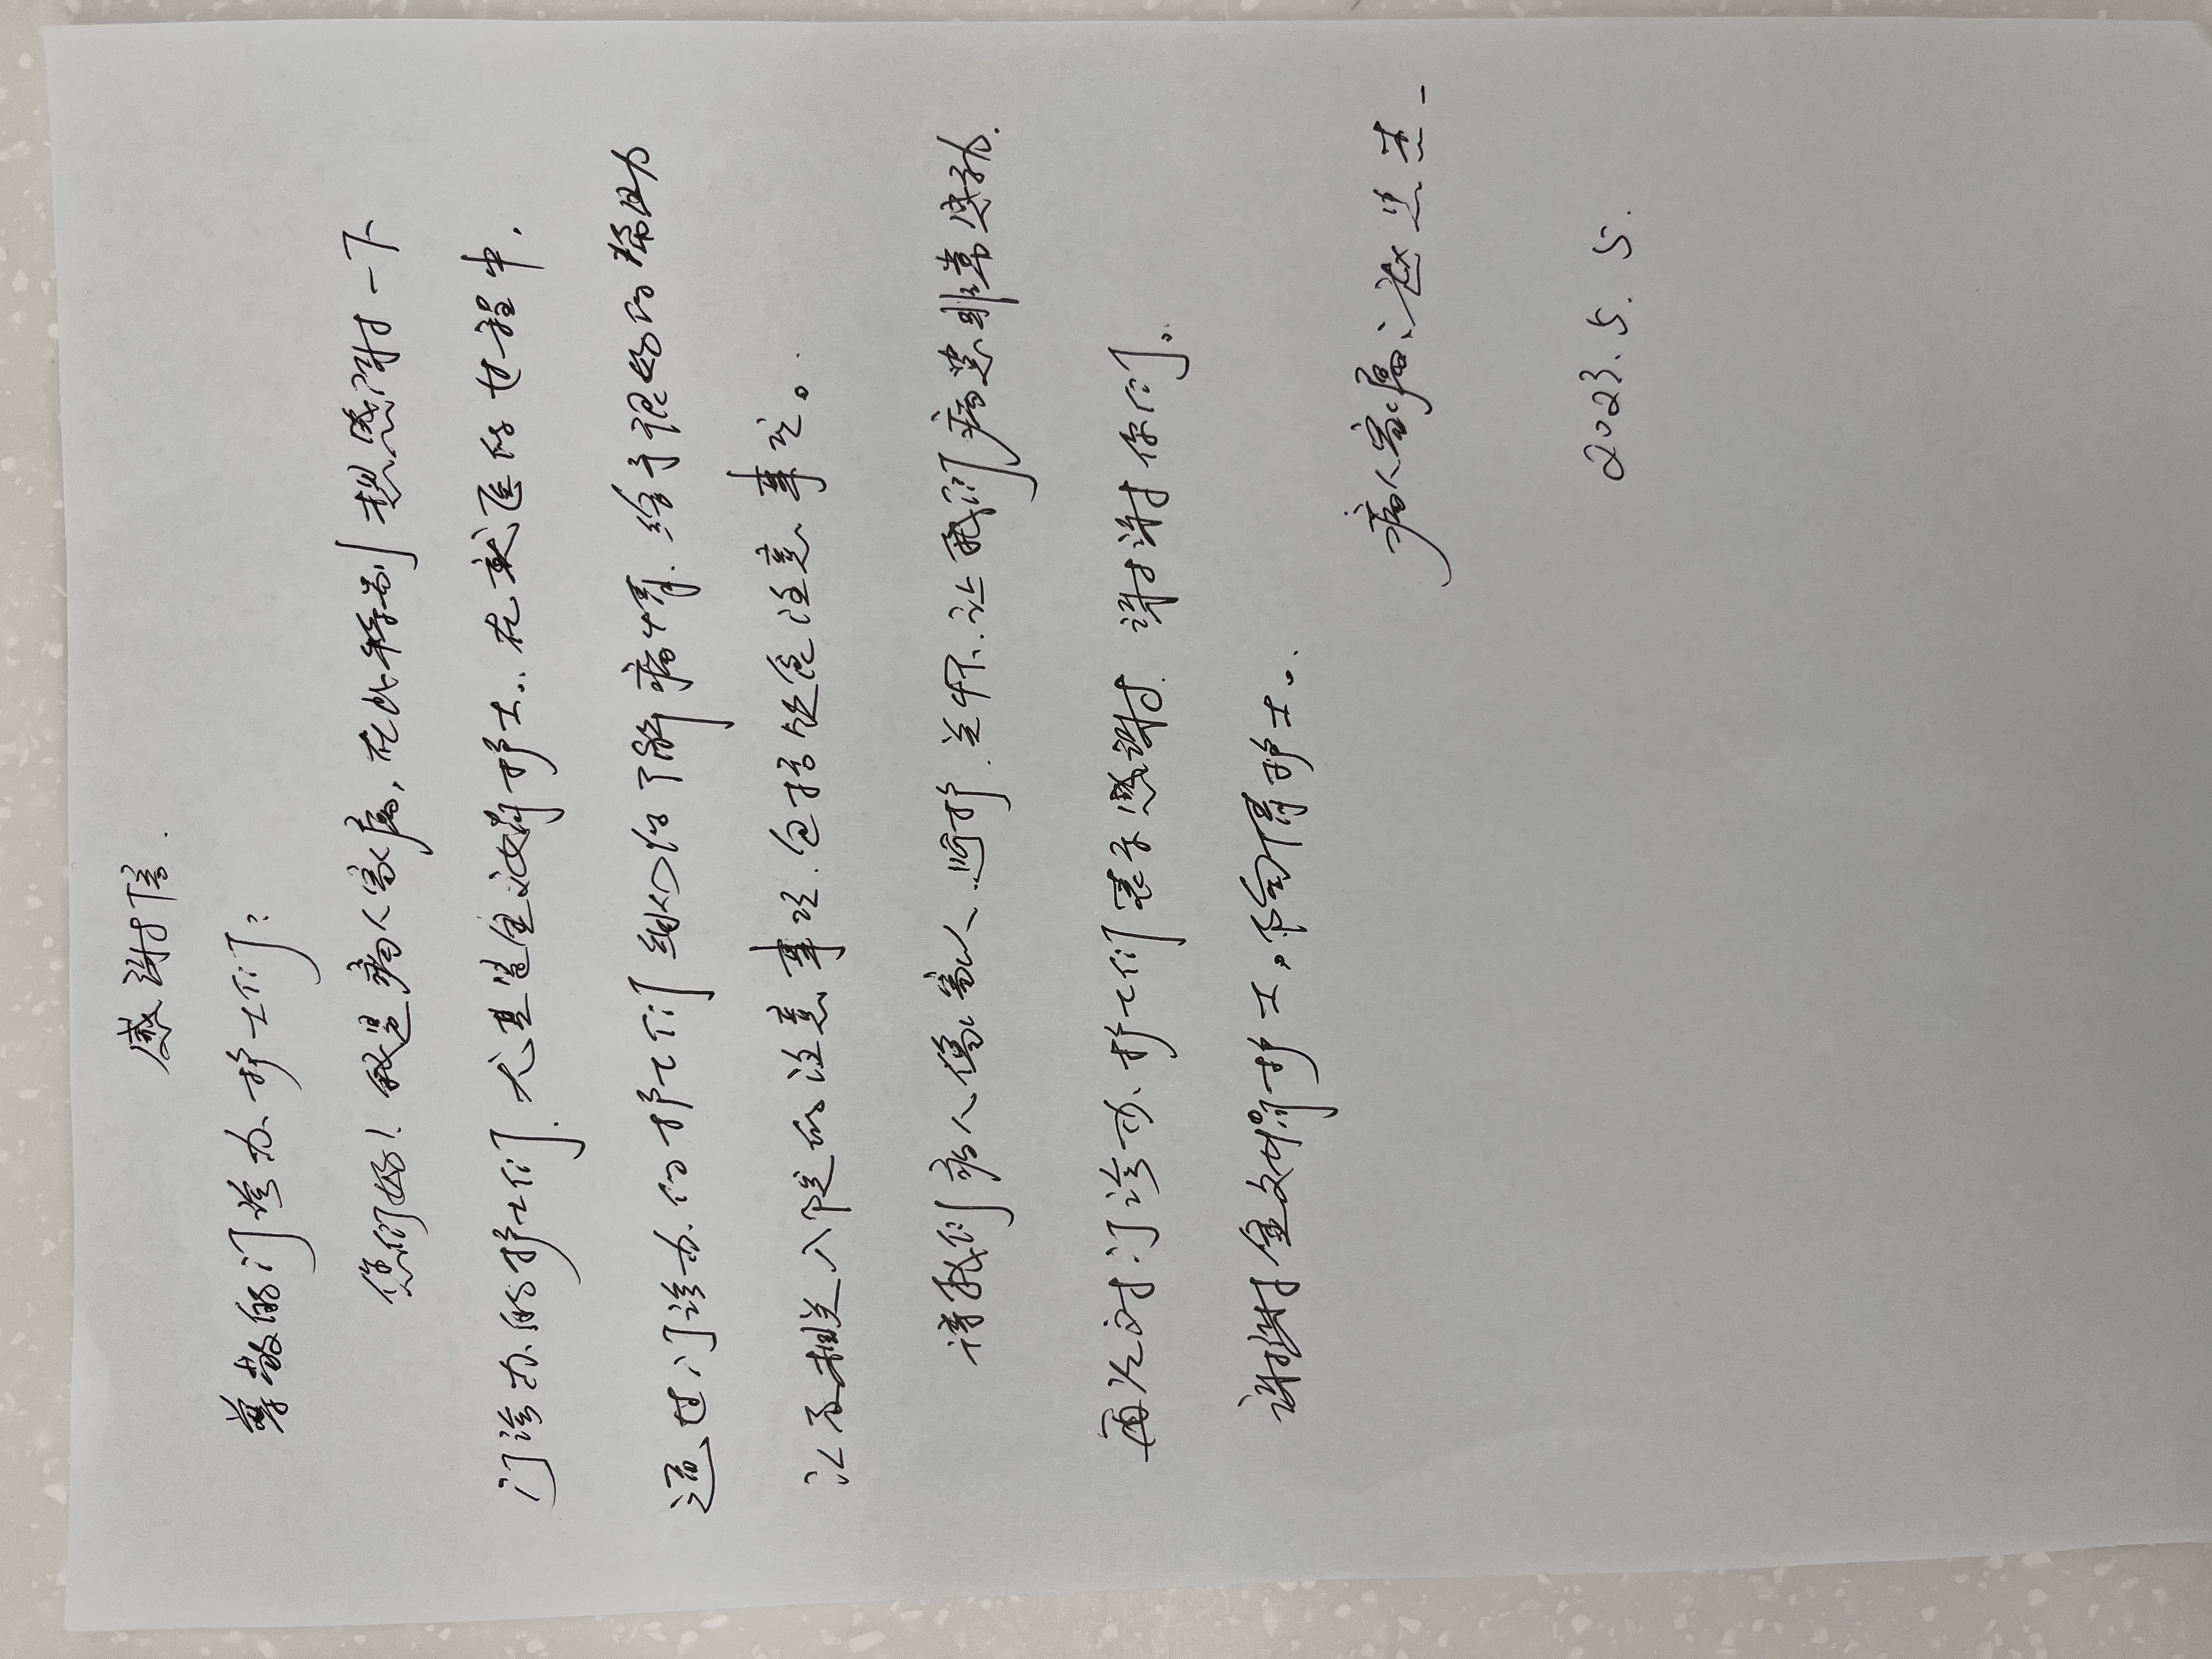 感谢信.
尊敬的门诊办护士们:
您们好!我是病人家属,在此特别想感谢一下
门诊办的护士们.尤其是金文婧护士.在就医的过程中,
通过门诊办的护士们细心的了解病情.给予很好的帮助
以及相关入院的注意事项.包括饮食注意事项。
待我们病人像家人呵护.关怀.让我们病患非常感动.
再次对门诊办护士们表示感谢.谢谢你们。
谢谢金文婧护士。陶倩护士。
病人家属:赵忠杰
2023.5.5.